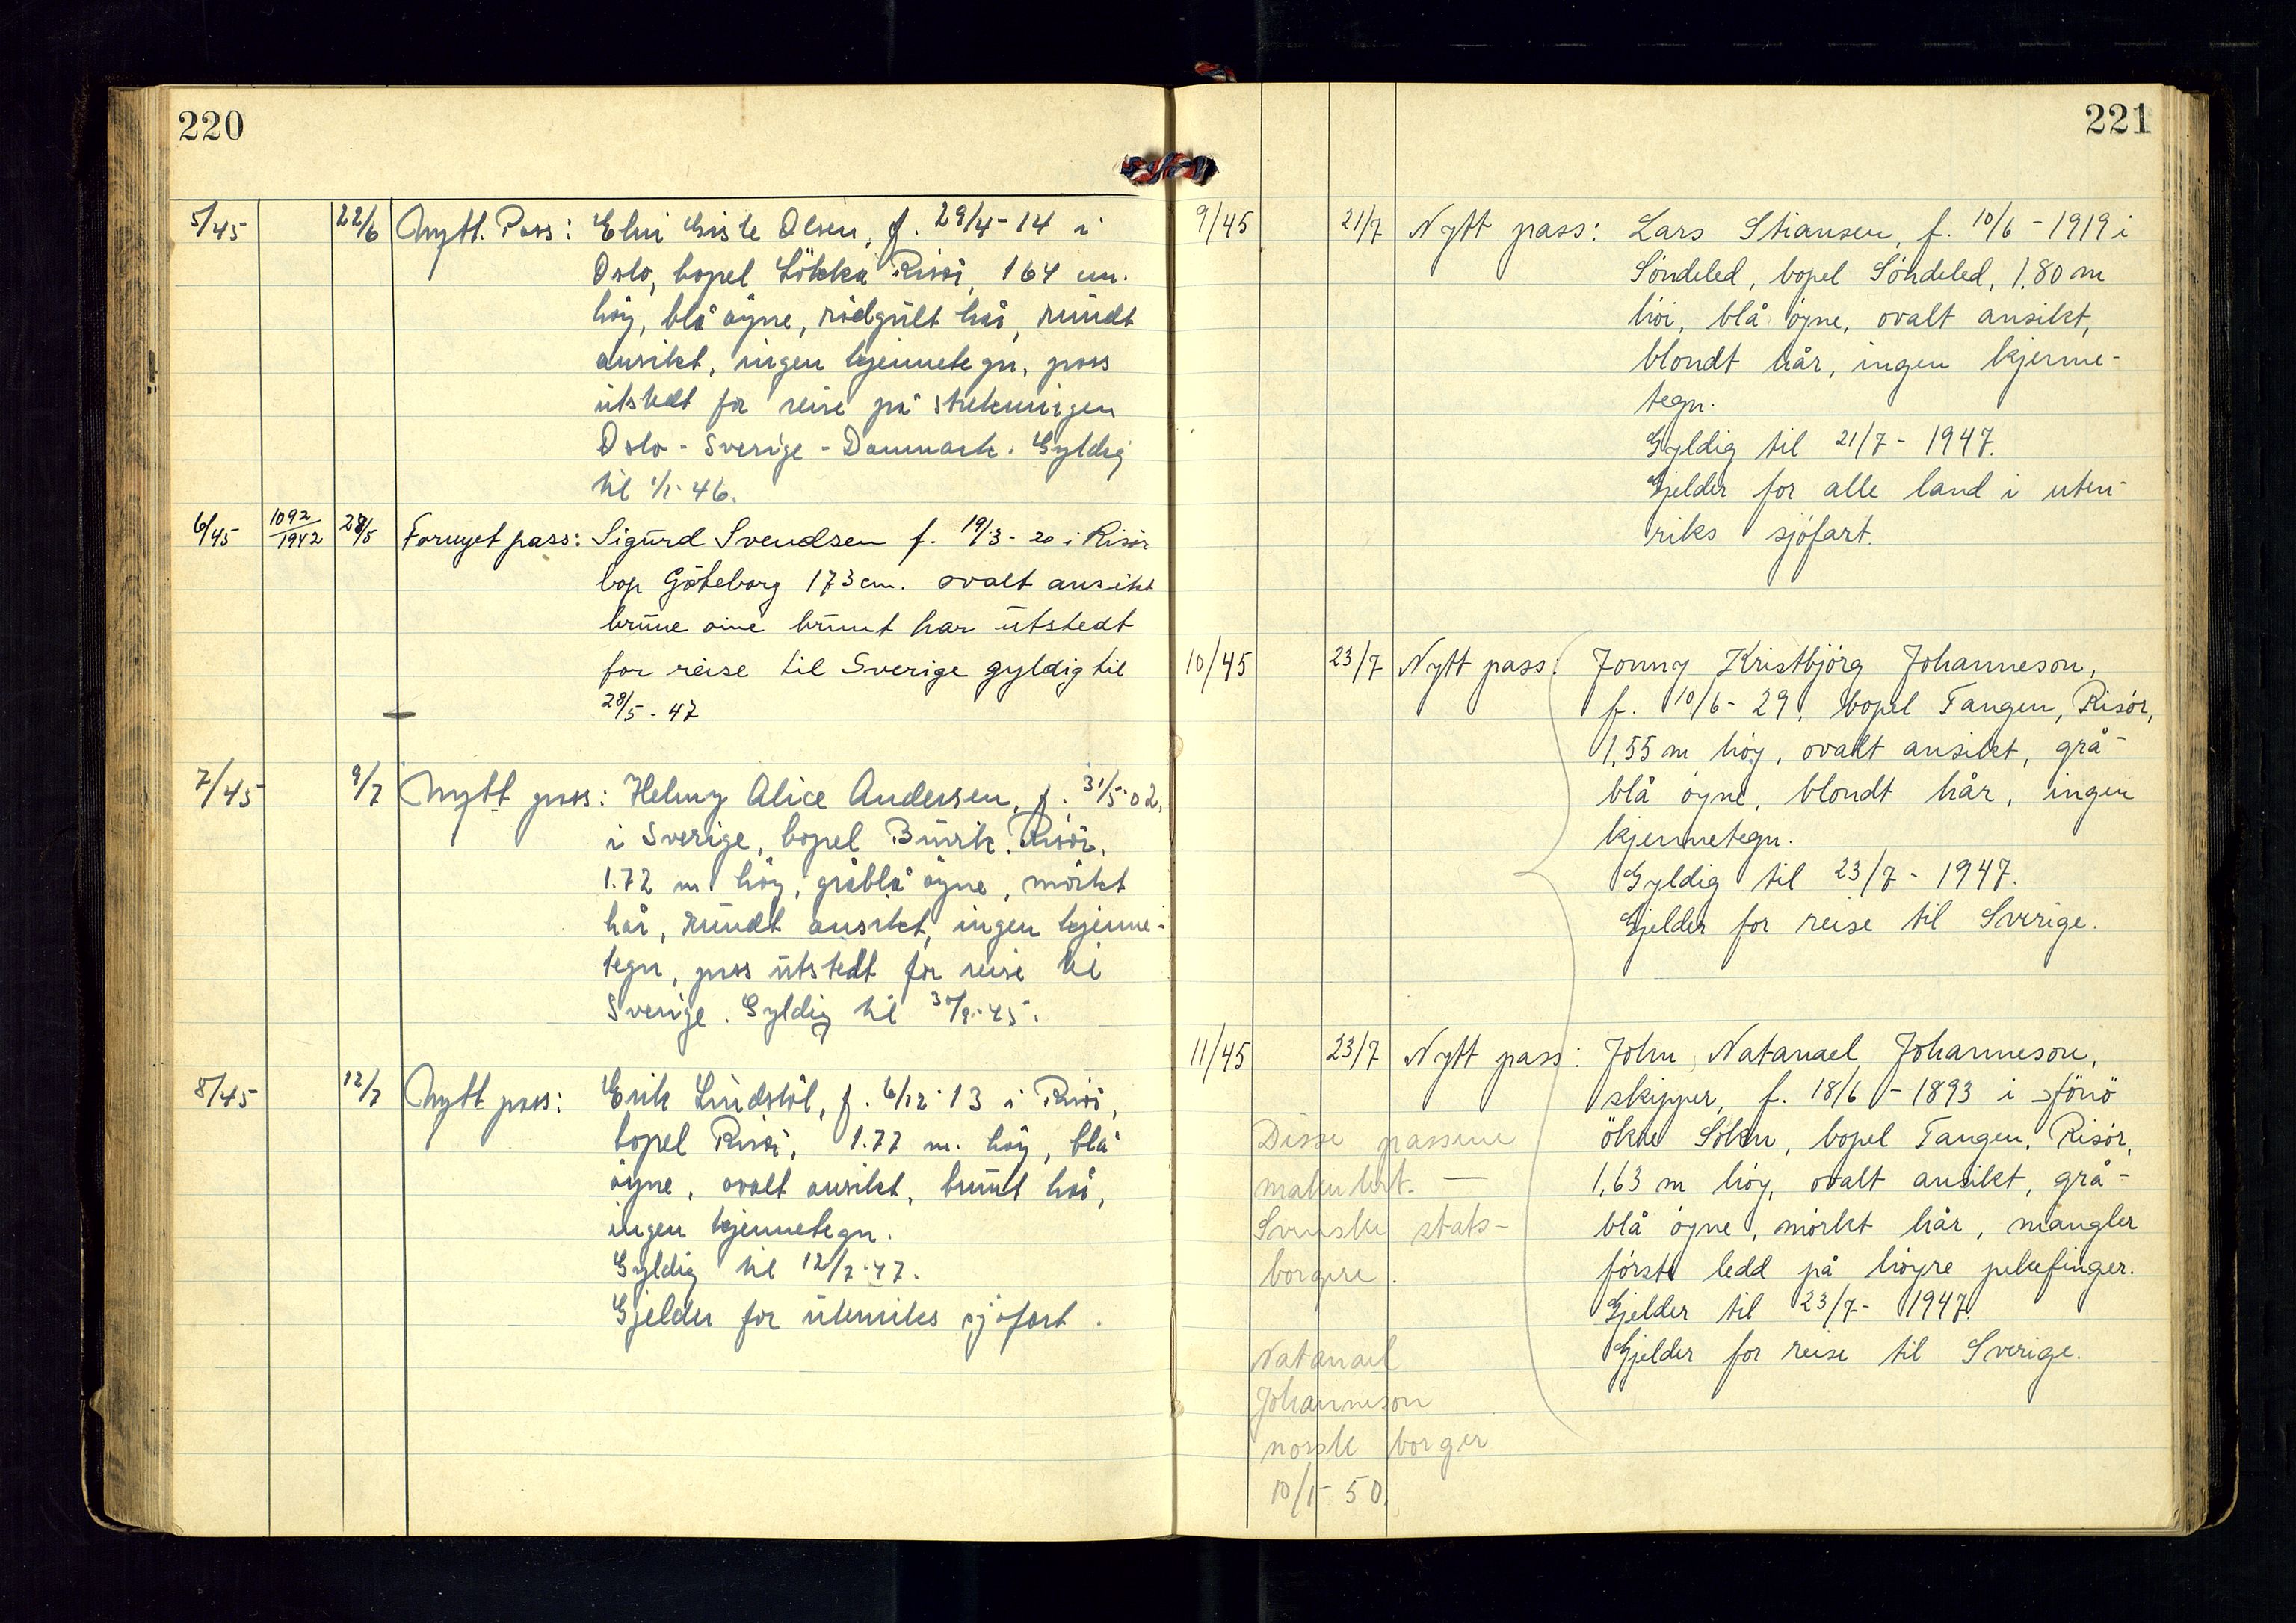 220
5/45 22/6 Nytt. Pass: Elni Giske Olsen, f. 29/4-14 i
Oslo, bopel Lökka Risör, 164 cm.
höy, blå öyne, rödgült hår, ründt
ansikt, ingen kjennetegn, pass
ütstedt for reise på strekningen
Oslo - Sverige - Danmark. Gyldig
til 1/1-46.
6/45 1092/1942 28/5 Fornyet pass: Sigürd Svendsen f. 19/3-20 i Risör
bop Göteborg 173 cm. ovalt ansikt
brüne öine brünt har ütstedt
for reise til Sverige gyldig til
28/5-47
7/45 9/7 Nytt pass: Helmy Alice Andersen, f. 31/5-02,
i Sverige, bopel Risör,
1.72 m höy, gråblå öyne, mörkt
hår, ründt ansikt, ingen kjenne-
tegn, pass ütstedt for reise til
Sverige. Gyldig til 30/9-45.
8/45 12/7 Nytt pass: Erik Lindstöl, f. 6/12-13 i Risör,
bopel Risör, 1.77 m. höy, blå
öyne, ovalt ansikt, brünt hår,
ingen kjennetegn.
Gyldig til 12/7-47.
Gjelder for ütenriks sjöfart.
221
9/45 21/7 Nytt pass: Lars Stiansen, f. 10/6-1919 i
Söndeled, bopel Söndeled, 1,80 m
höi, blå öyne, ovalt ansikt,
blondt hår, ingen kjenne-
tegn.
Gyldig til 21/7-1947.
Gjelder for alle land i uten-
riks sjöfart.
10/45 23/7 Nytt pass: Jonny Kristbjörg Johanneson,
f. 10/6-29, bopel Tangen, Risör,
1,55 m höy, ovalt ansikt, grå-
blå öyne, blondt hår, ingen
kjennetegn.
Gyldig til 23/7-1947.
Gjelder for reise til Sverige.
11/45 23/7 Nytt pass: John Natanael Johanneson,
skipper, f. 18/6-1893 i
bopel Tangen, Risör,
1,63 m höy, ovalt ansikt, grå-
blå öyne, mörkt hår, mangler
förste ledd på höyre pekefinger.
Gjelder til 23/7-1947.
Gjelder for reise til Sverige.
Disse passene
makulert. —
Svenske stats-
borgere.
Natanael
Johanneson
norsk borger
10/1-50.